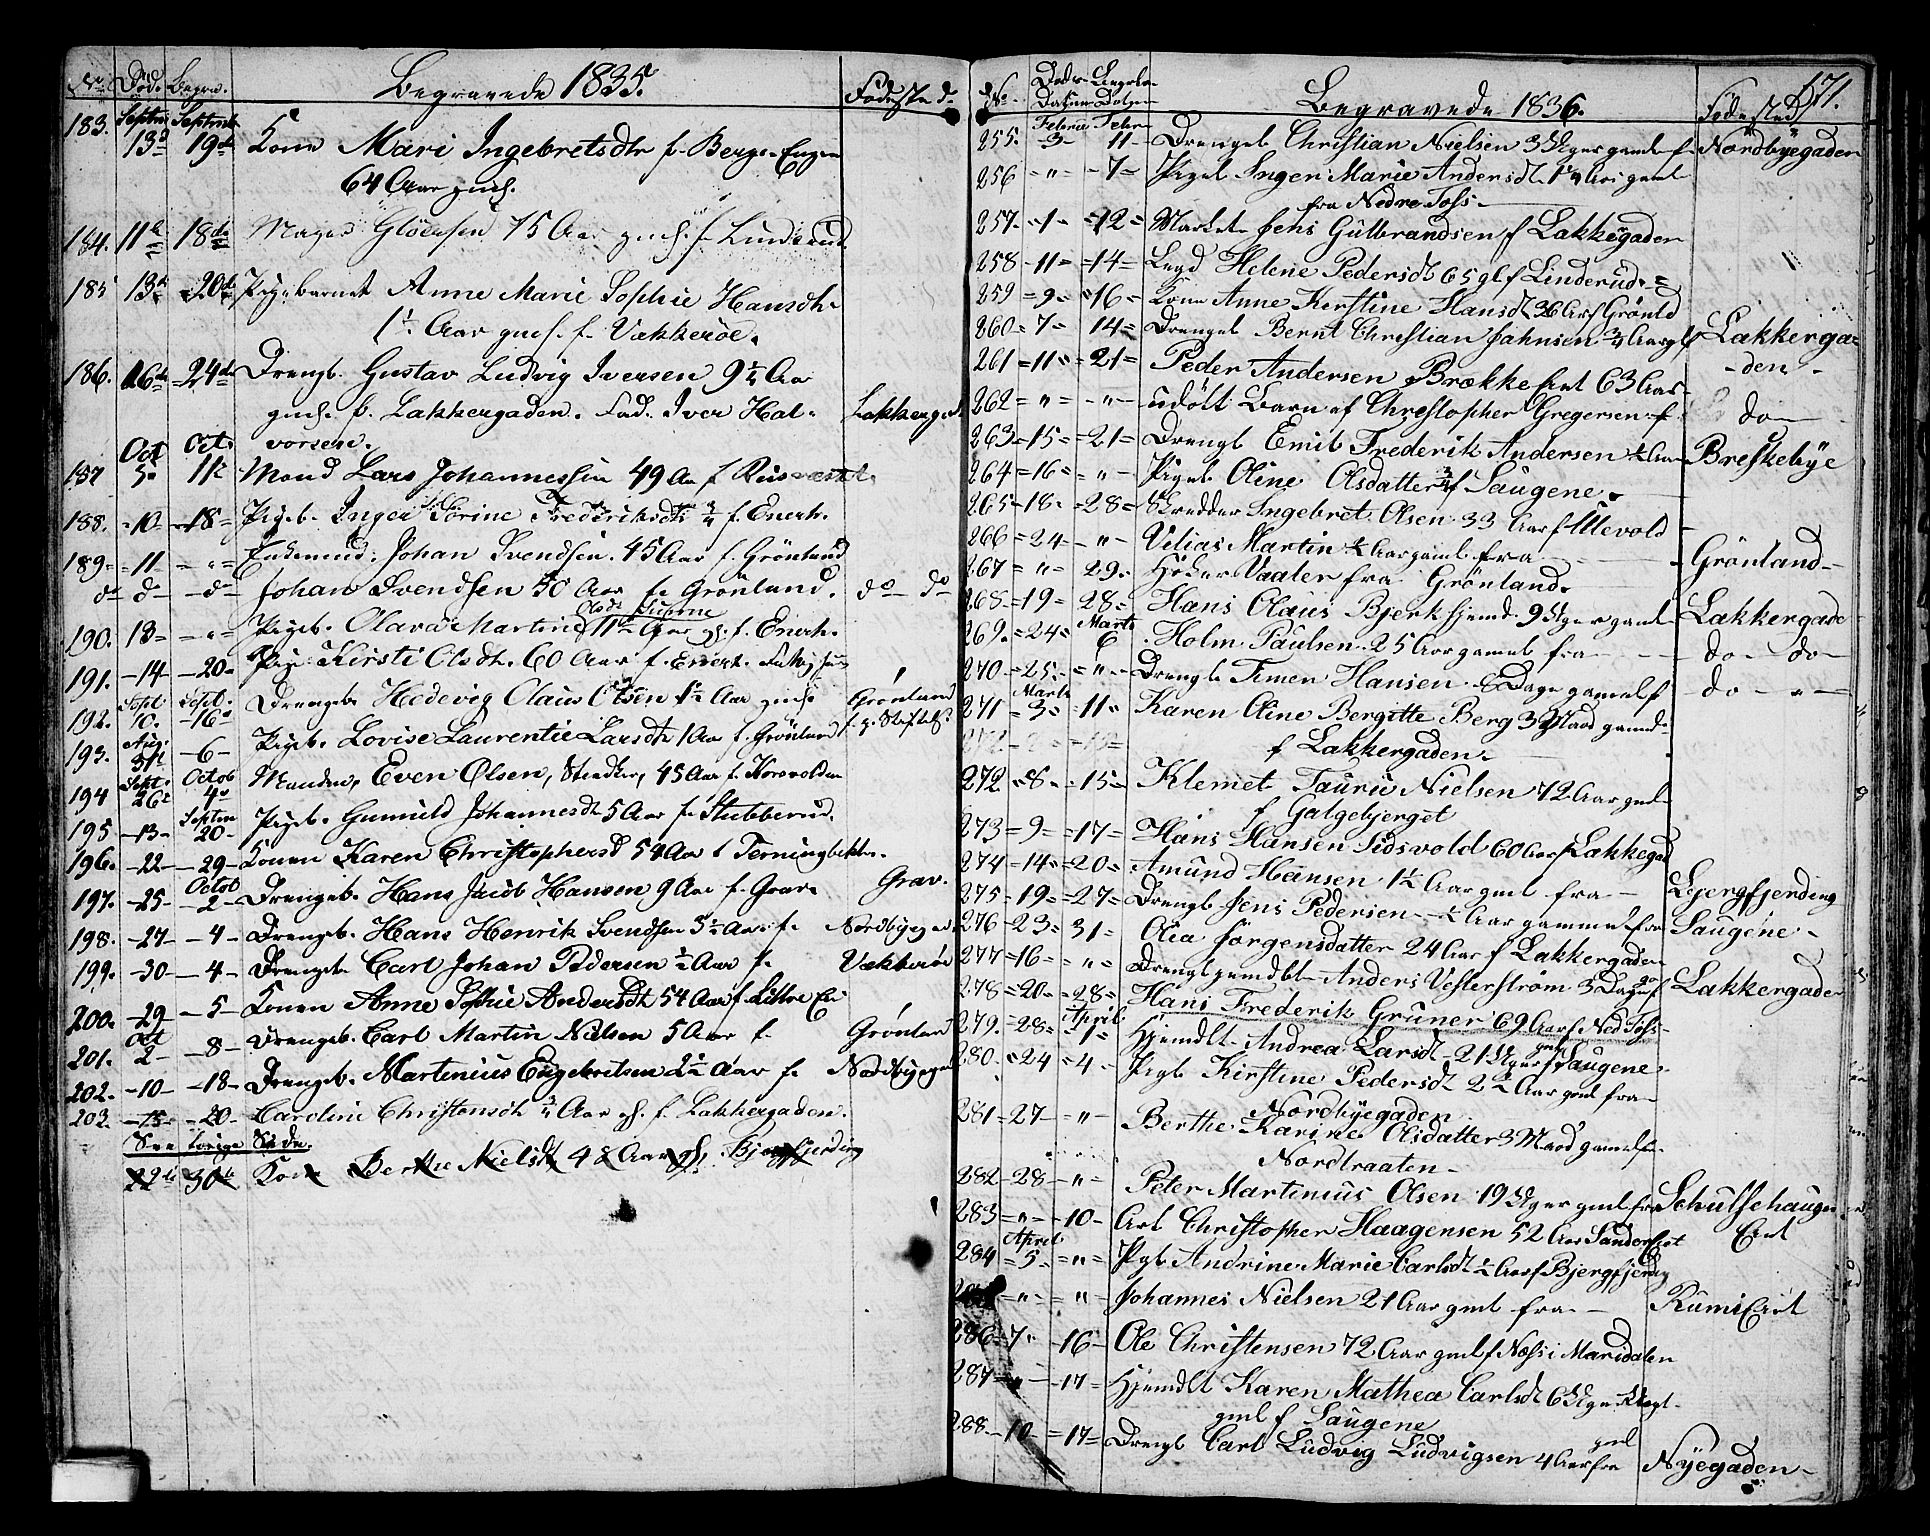 No Död. Begra. Begravede 1835. Födested.
183. Septr 13d Septembr 19de Kone Mari Ingebretsdtr f. Berge-Engen
64 Aar gml.
184. 11te 18de Gloersen 75 Aar gml. f. Linderud
185 13de 20de Pigebarnet Anne Marie Sophie Hansdtr
1 1/2 Aar gml. f. Vækkeröe.
186. 16de 24de Drengb. Gustav Ludvig Iversen 9 1/4 Aar
gml. f. Lakkergaden. Fad. Iver Hal- Lakkergad.
vorsen.
187 Oct 5. Oct. 11te Mand Lars Johannessen 49 Aar f.
188. -10- -18- Pigeb. Inger Sörine Frederiksdtr 3/4 f. Enerh.
189- -11- -"- Enkemand. Johan Svendsen. 45 Aar f. Grönland
do do -do- Johan Svendsen 50 Aar f. Grönland. do do
Olsdt
190. 13- -"- Pigeb. Olava Martine 11 Aar gl. f. Enerh.
191. -14- -20- Pige Kirsti Olsdtr. 60 Aar f. Enerh.
192. Septr. 10. Septr. -16- Drengeb. Hedevig Olaus Olsen 1 1/2 Aar gml. Grönland
193. Aug. 31te -6- Pigeb. Lovise Laurentie Larsdtr 1 Aar f. Grönland
194 Septr. 26de Octob 4de Manden, Even Olsen, 45 Aar f. Korsvolden
195 -13- Septem 20- Pigeb. Gunnild Johannesdt 5 Aar f. Stubberud.
196. -22- -29- Konen Karen Christophersd 54 Aar f. Terningbekken.
197. -25- Octob -2- Drengeb. Hans Jacob Hansen 9 Aar f. Grav. Grav.
198. -27- -4- Drengeb. Hans Henrik Svendsen 3 1/2 Aar f. Nordbygad.
199. -30- -4- Drengeb. Carl Johan Pedersen 1/2 Aar f. Vækkeröe
200. -29- -5- Konen Anne Sophie Andersdt 54 Aar f.
201. Oct 2- -8- Drengeb. Carl Martin Nielsen 5 Aar f. Grönland
202. -10- -18- Drengeb. Martinius Engebretsen 2 1/2 Aar f. Nordbygad
203. -15- -20- Caroline Christensdt 3/4 Aar gl. f. Lakkergaden.
See forige Side.
22de 30te Kone Berthe Nielsdt 48 Aar gl. Bjergfjerding
171.
No. Döds-Datum Begravelses Datum Begravede 1836. Födested
255. Februar -3- Febr 11- Drengeb. Christian Nielsen 3 Uger gaml f. Nordbyegaden
256 -"- -7- Pigeb. Inger Marie Andersdt 1 1/4 Aar gaml
fra Nedre Foss-
257. -1- -12- Jens Gulbrandsen f. Lakkegaden
258 -11- =14= Legd Helene Pedersdt 65 gl f. Linderud. =
259 =9= =16= Kone Anne Kerstine Hansdt 36 Aar f Grönld
260 =7= 14= Drengeb. Bernt Christian Jahnsen 3/4 Aar gl f Lakkerga-
261 =11= =21= Peder Andersen Brække 63 Aar- -den-
262 =„= -„- udöbt Barn af Christopher Gregersen f. do-
263 =15= =21= Drengb Emil Frederik Andersen 1/2 Aar Breskebye
264 =16= „- Pigeb. Oline Olsdatter 3/4 f Saugene.
265 -18- =28= Skredder Ingebret Olsen 33 Aar f Ullevold -
266 =24- -„- Vilias Martin 1/2 Aar gaml. fra - Grönland-
267 =„- 29- Höker Vaaler fra Grönland.
268- =19= 28- Hans Olaus Bjerk hjemd. 9 Uger gaml- Lakkergade
269. =24= Marts 6 Holm Paulsen 25 Aar gamel fra - - do- do-
270 =25.- =„- Drengb Timen Hansen 8 Dage gamel f do-"-
271 Marts =3- -11- Karen Oline Bergitte Berg 3 Maad gamel-
f Lakkergaden-
272 =8- -15- Klemet Taurie Nielsen 72 Aar gml-
f Galgebjerget
273 =9- =17= Hans Hansen Eidsvold 60 Aar f Lakkegad
274 =14= =20= Amund Hansen 1 1/2 Aar gml fra - Bjergfjerding
275 =19= =27= Drengb Jens Pedersen 1/2 Aar gammel fra Saugene-
276 -23- 31= Olea Jörgensdatter 24 Aar f Lakkergaden
277 =16- =„= Drengb hjemdbt Anders Vesterström 3 Dage f Lakkergaden
278 =20- =28= Hans Frederik Grüner 69 Aar f Ned Foss-
279. -28- April 1- Hjemdt- Andrea Larsdt 21 Uger gml f Saugene-
280. -24 =4- Pigb Kirstine Pedersdt 2 1/2 Aar gml fra-
Nordbyegaden-
281- 27- „- Berthe Karine Olsdatter 3 Maad gamel fr-
Nordbraaten-
282 -28 -„- Peter Martinius Olsen 19 Uger gml fra Schulsehaugen
283 =„= -10- Arb Christopher Haagensen 52 Aar Sander Eiet Eiet
284 April =5- =„= Pigb Andrine Marie Carlsdt 1/2 Aar f Bjergfjerding
=„= =„- Johannes Nielsen 21 Aar gml fra - Rumi Eiet
286- 7- 16- Ole Christensen 72 Aar gml f Næss i Maridalen
287 =„- -17= Hjemdt Karen Mathea Carlsdt 6 Uger
gml f Saugene
288- 10- =17= Drengb Carl Ludvig Ludvigsen 4 Aar gml fra Nÿegaden-